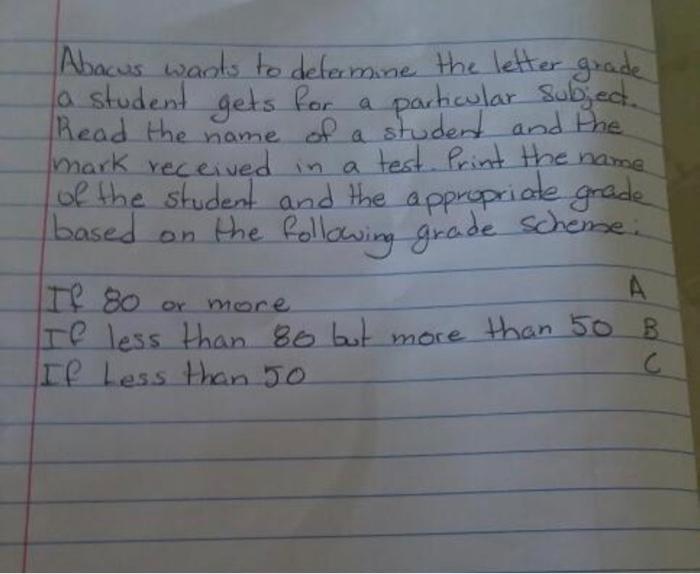 Abacus wants to determine the letter grade
a student gets for a particular subject.
Read the name of a student and the
mark received in a test. Print the name
of the student and the appropriate grade
based on the following grade scheme:
If 80 or more A
If less than 80 but more than 50 B
If Less than 50 C